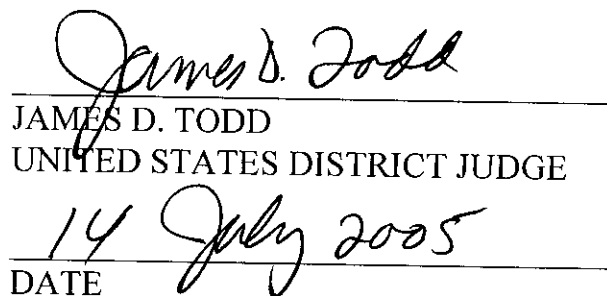 James D. Todd
JAMES D. TODD
UNITED STATES DISTRICT JUDGE
14 July 2005
DATE